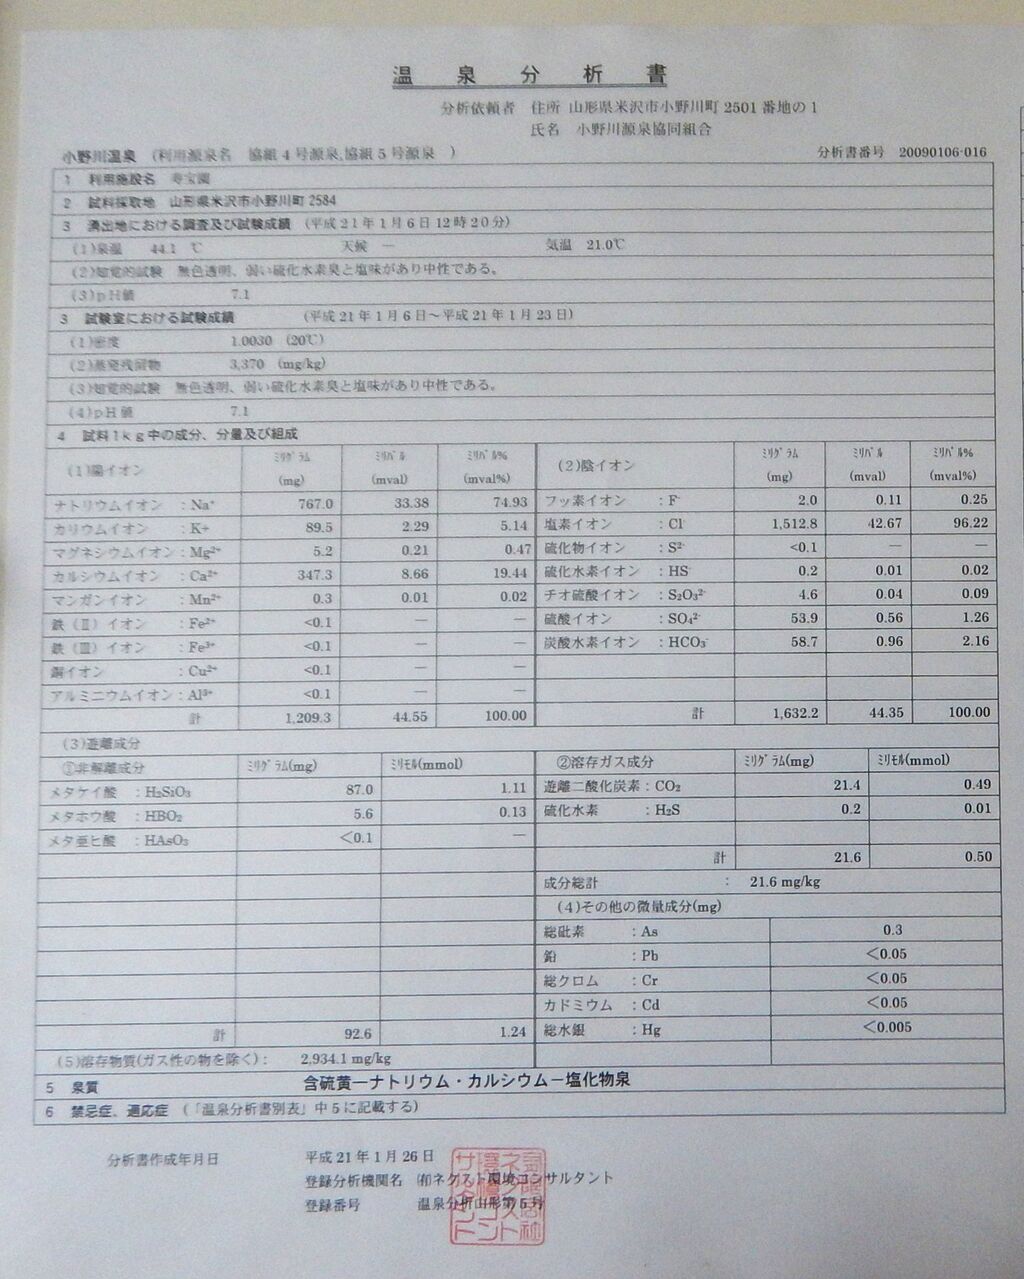 温泉分析書
分析依頼者 住所 山形県米沢市小野川町 2501 番地の 1
氏名 小野川源泉協同組合
小野川温泉 (利用源泉名 協組 4 号源泉,協組 5 号源泉 )
分析書番号 20090106-016
1 利用施設名 寿宝園
2 試料採取地 山形県米沢市小野川町 2584
3 湧出地における調査及び試験成績 (平成 21 年 1 月 6 日 12 時 20 分)
(1)泉温 44.1 ℃ 天候 ― 気温 21.0℃
(2)知覚的試験 無色透明、弱い硫化水素臭と塩味があり中性である。
(3)pH値 7.1
3 試験室における試験成績 (平成 21 年 1 月 6 日～平成 21 年 1 月 23 日)
(1)密度 1.0030 (20℃)
(2)蒸発残留物 3,370 (mg/kg)
(3)知覚的試験 無色透明、弱い硫化水素臭と塩味があり中性である。
(4)pH値 7.1
4 試料1kg中の成分、分量及び組成
(1)陽イオン ﾐﾘｸﾞﾗﾑ (mg) ﾐﾘﾊﾞﾙ (mval) ﾐﾘﾊﾞﾙ% (mval%)
ナトリウムイオン : Na⁺ 767.0 33.38 74.93
カリウムイオン : K+ 89.5 2.29 5.14
マグネシウムイオン : Mg²⁺ 5.2 0.21 0.47
カルシウムイオン : Ca²⁺ 347.3 8.66 19.44
マンガンイオン : Mn²⁺ 0.3 0.01 0.02
鉄(Ⅱ)イオン : Fe²⁺ <0.1 ― ―
鉄(Ⅲ)イオン : Fe³⁺ <0.1 ― ―
銅イオン : Cu²⁺ <0.1 ― ―
アルミニウムイオン : Al³⁺ <0.1 ― ―
計 1,209.3 44.55 100.00
(2)陰イオン ﾐﾘｸﾞﾗﾑ (mg) ﾐﾘﾊﾞﾙ (mval) ﾐﾘﾊﾞﾙ% (mval%)
フッ素イオン : F⁻ 2.0 0.11 0.25
塩素イオン : Cl⁻ 1,512.8 42.67 96.22
硫化物イオン : S²⁻ <0.1 ― ―
硫化水素イオン : HS⁻ 0.2 0.01 0.02
チオ硫酸イオン : S₂O₃²⁻ 4.6 0.04 0.09
硫酸イオン : SO₄²⁻ 53.9 0.56 1.26
炭酸水素イオン : HCO₃⁻ 58.7 0.96 2.16
計 1,632.2 44.35 100.00
(3)遊離成分
①非解離成分 ﾐﾘｸﾞﾗﾑ(mg) ﾐﾘﾓﾙ(mmol)
メタケイ酸 : H₂SiO₃ 87.0 1.11
メタホウ酸 : HBO₂ 5.6 0.13
メタ亜ヒ酸 : HAsO₃ <0.1 ―
計 92.6 1.24
②溶存ガス成分 ﾐﾘｸﾞﾗﾑ(mg) ﾐﾘﾓﾙ(mmol)
遊離二酸化炭素 : CO₂ 21.4 0.49
硫化水素 : H₂S 0.2 0.01
計 21.6 0.50
成分総計 : 21.6 mg/kg
(4)その他の微量成分(mg)
総砒素 : As 0.3
鉛 : Pb <0.05
総クロム : Cr <0.05
カドミウム : Cd <0.05
総水銀 : Hg <0.005
(5)溶存物質(ガス性の物を除く) : 2,934.1 mg/kg
5 泉質 含硫黄－ナトリウム・カルシウム－塩化物泉
6 禁忌症、適応症 (「温泉分析書別表」中 5 に記載する)
分析書作成年月日 平成 21 年 1 月 26 日
登録分析機関名 ㈲ネクスト環境コンサルタント
登録番号 温泉分析山形第 5 号